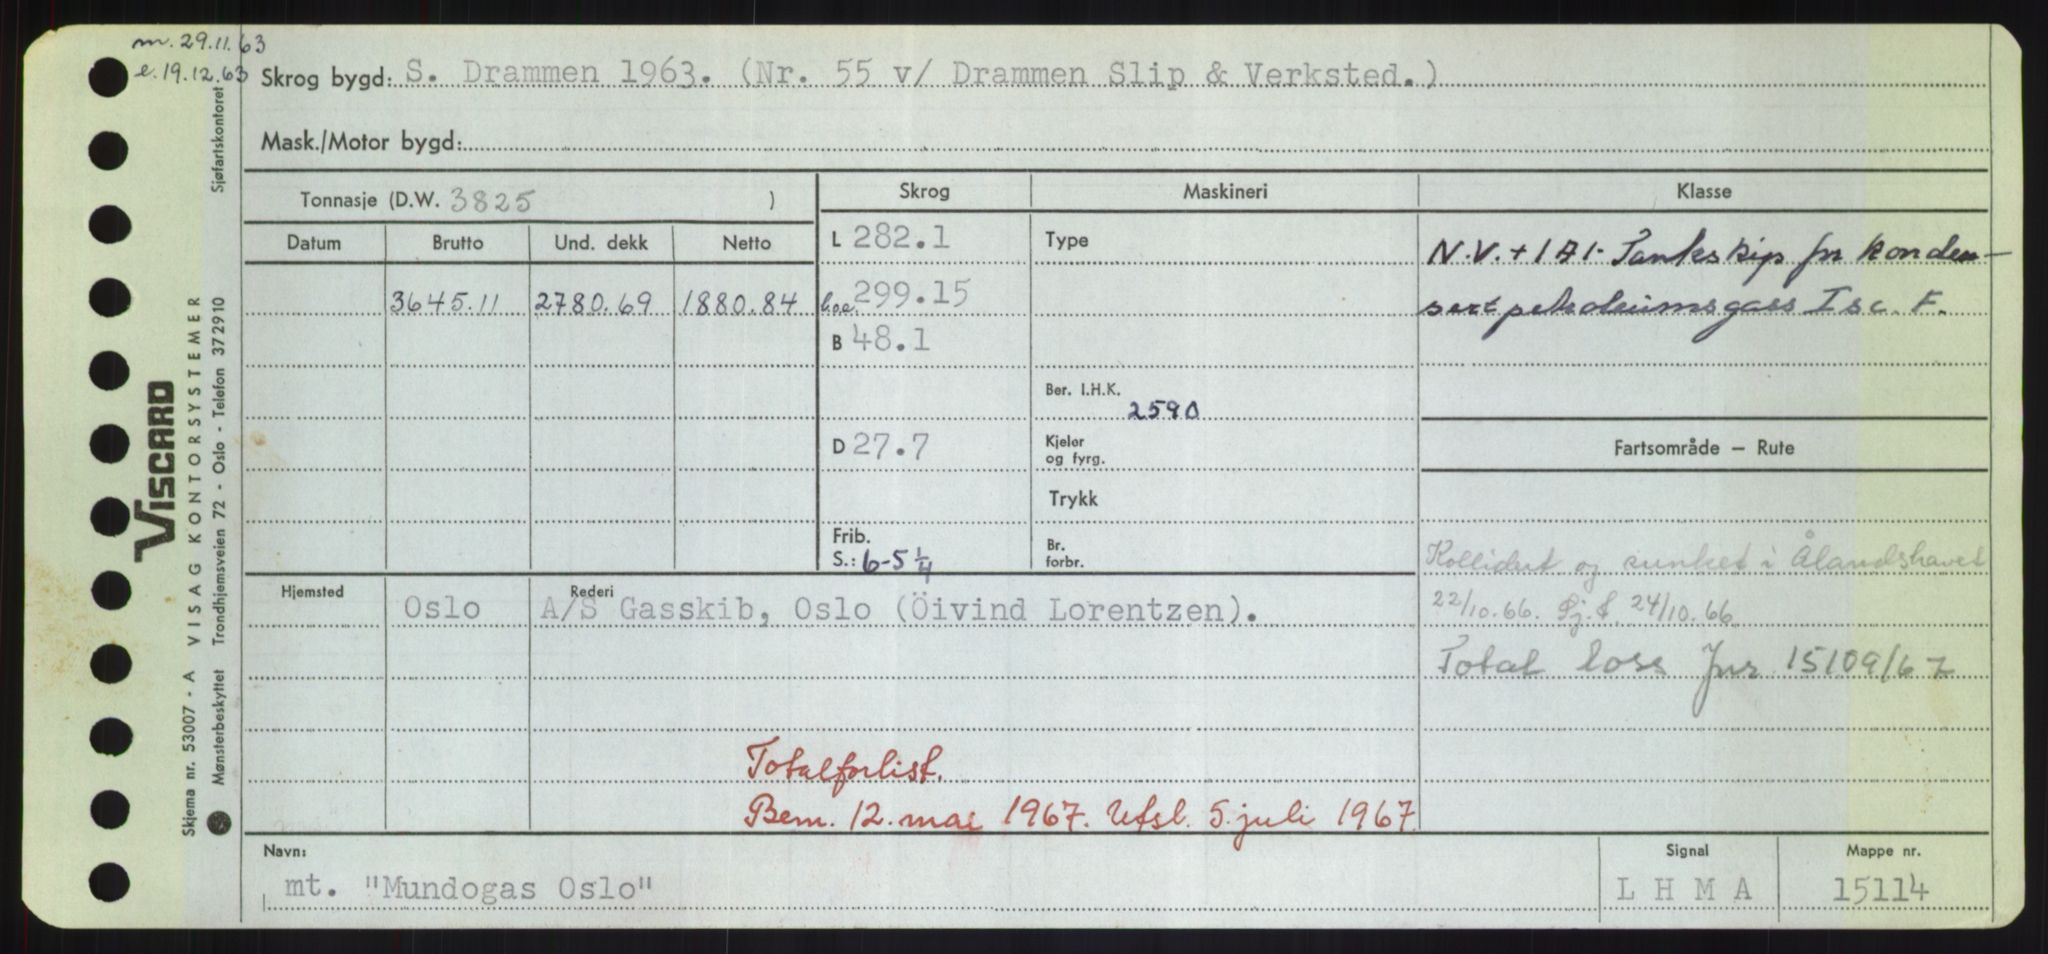 m. 29.11.63
e. 19.12.63
Skrog bygd: S. Drammen 1963. (Nr. 55 v/ Drammen Slip & Verksted.)
Mask./Motor bygd:
Tonnasje (D.W. 3825 )
Datum Brutto Und. dekk Netto
3645.11 2780.69 1880.84
Skrog
L 282.1
l.o.a. 299.15
B 48.1
D 27.7
Frib.
S.: 6-5 1/4
Maskineri
Type
Ber. I.H.K.
2590
Kjeler
og fyrg.
Trykk
Br.
forbr.
Klasse
N.V. + 1A1. Tankskip for konden-
sert petroleumsgass Isc. F.
Fartsområde – Rute
Kollidert og sunket i Ålandshavet
22/10.66. Sj.f. 24/10.66.
Total loss Jnr 15109/67
Hjemsted Rederi
Oslo A/S Gasskib, Oslo (Öivind Lorentzen).
Totalforlist.
Bem. 12. mai 1967. Utsl. 5. juli 1967.
Navn:
mt. "Mundogas Oslo"
Signal
L H M A
Mappe nr.
15114
Sjøfartskontoret
VISCARD
VISAG KONTORSYSTEMER
Skjema nr. 53007 - A
Mønsterbeskyttet Trondhjemsveien 72 - Oslo - Telefon 372910